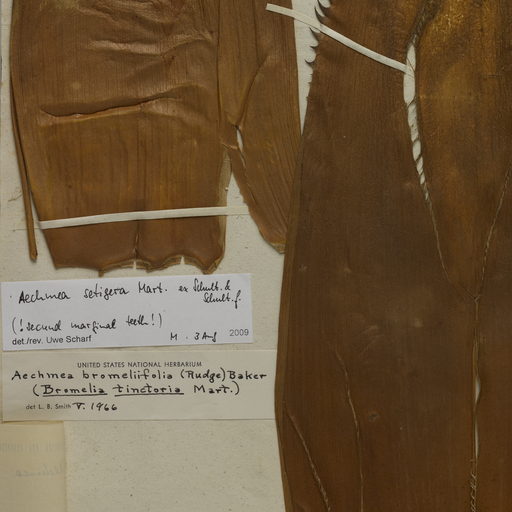 Aechmea setigera Mart. ex Schult. &
Schult. f.
(! secund marginal teeth!)
M. 3 Aug 2009
det./rev. Uwe Scharf
UNITED STATES NATIONAL HERBARIUM
Aechmea bromeliifolia (Rudge) Baker
(Bromelia tinctoria Mart.)
det L. B. Smith V. 1966